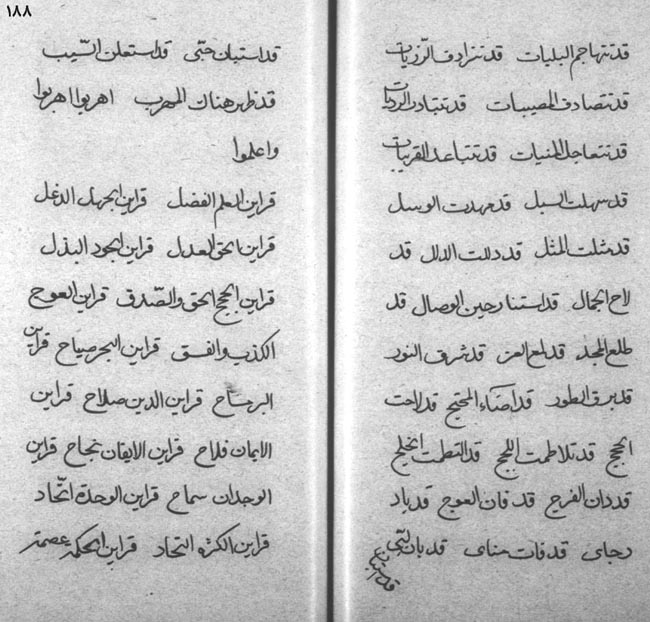 ١٨٨
قد تتهاجم البليات قد تترادف الرزيات
قد تتصادف المصيبات قد تتبادر الرديات
قد تتعاجل المنيات قد تتباعد القربيات
قد سهلت السبل قد مهدت الوسل
قد مثلت المثل قد دللت الدلل قد
لاح الجمال قد استنار حين الوصال قد
طلع المجد قد لمع العز قد شرق النور
قد برق الطور قد اضاء المحتج قد لاحت
الحجج قد تلاطمت اللجج قد التطمت الخلج
قد دان الفرج قد فان العوج قد باد
رجای قد فات منای قد بان التی
قد استبان حتی قد استعلن الشیب
قد ظهر هناك المهرب اهربوا اهربوا
واعلموا
قراین العلم الفضل قراین الجهل الدغل
قراین الحق العدل قراین الجود البذل
قراین الحجج الحق والصدق قراین العوج
الكذب والفسق قراین البحر صیاح قراین
قراین الدین صلاح قراین
الایمان فلاح قراین الایقان نجاح قراین
الوجدان سماح قراین الوحدة اتحاد
قراین الكثره التحاد قراین الحكمة عصمة